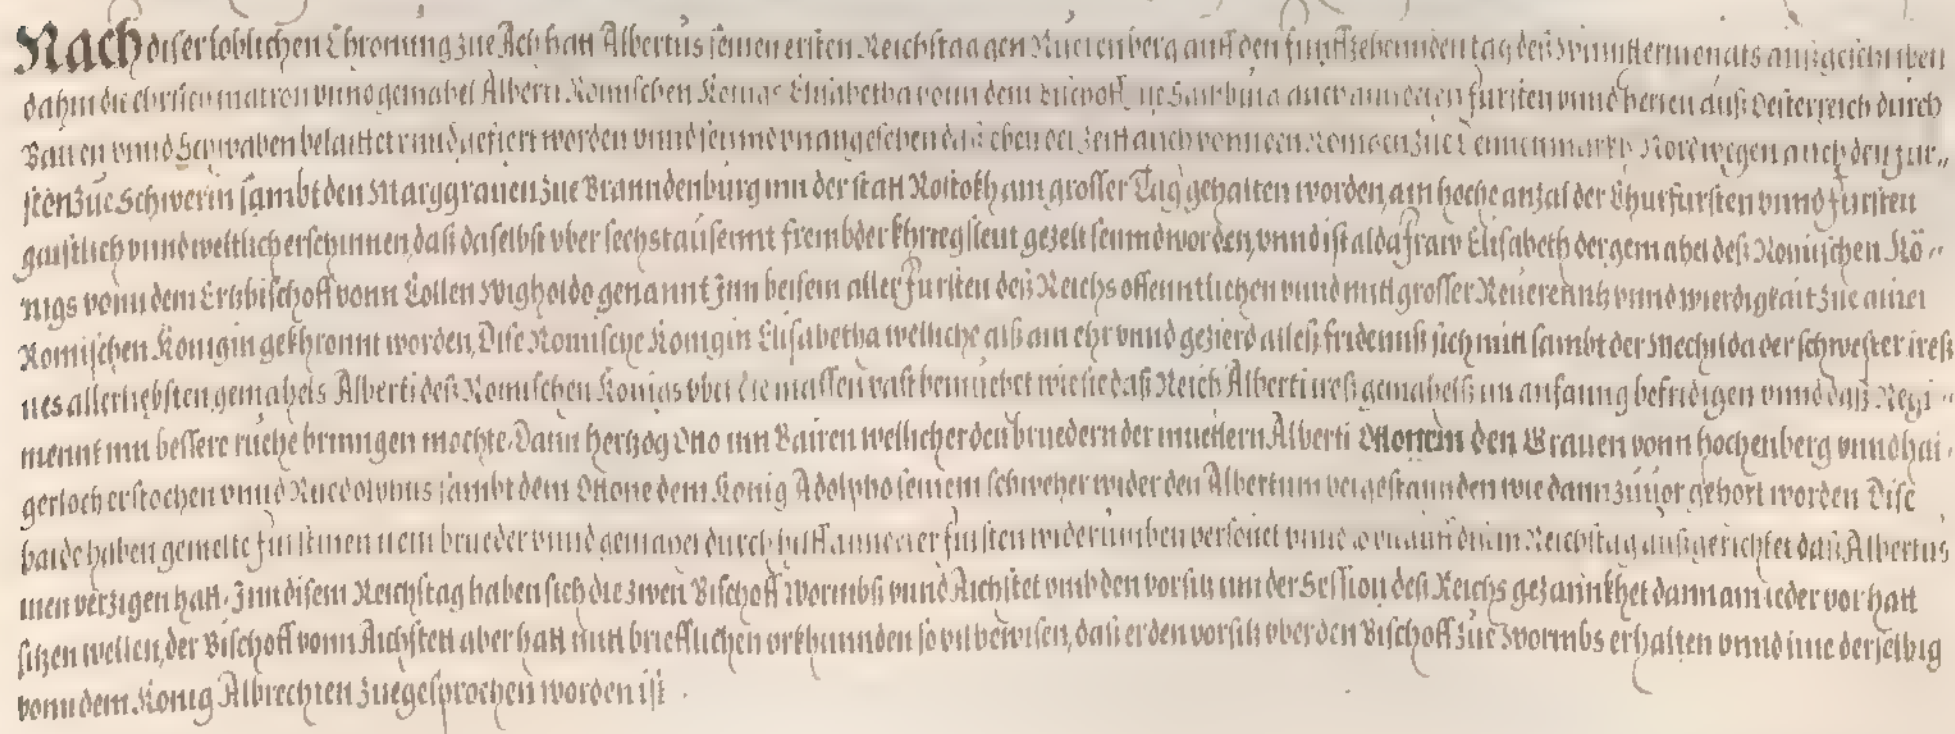 Nach diser loblichen Chronung zue Ach hatt Albertus seinen ersten Reichstag gen Nuerenberg auff den funffzehennden tag deß Winttermonats außgeschriben
dahin die matron vnnd gemahel Alberti Romischen Konigs Elisabetha vonn dem Bischoff auch anndern fursten vnnd herren auß Oesterreich durch
Bairen vnnd Schwaben belaittet vnnd gefiert worden vnnd seinnd vnangesehen daß eben der Zeitt auch vonn den Konigen zue Dennenmarkh Norwegen auch den Fur„
sten zue Schwerin sambt den Marggrauen zue Branndenburg inn der statt Rostokh ain grosser Tag gehalten worden, ain hoche anzal der Churfursten vnnd Fursten
gaistlich vnnd weltlich erschinnen, daß daselbst vber sechstausennt frembder khriegsleut gezelt seinnd worden, vnnd ist alda fraw Elisabeth der gemahel deß Romischen Kö„
nigs vonn dem Ertzbischoff vonn Collen Wigholdo genannt Inn beisein aller Fursten deß Reichs offenntlichen vnnd mitt grosser Reuerenntz vnnd wierdigkait zue ainer
Romischen Konigin gekhronnt worden, Dise Romische Konigin Elisabetha welliche alß ain ehr vnnd gezierd alleß fridennß sich mitt sambt der Mechilda der schwester ireß
nes allerliebsten gemahels Alberti deß Romischen Konigs vber die massen vast bemuehet wie sie daß Reich Alberti ireß gemahelß im anfanng befridigen vnnd daß Regi„
mennt inn bessere ruche brinngen mochte. Dann Hertzog Otto inn Bairen wellicher den bruedern der muettern Alberti Ottonem den Grauen vonn Hochenberg vnnd hai„
gerloch erstochen vnnd Ruedolphus sambt dem Ottone dem Konig Adolpho seinem schweher wider den Albertum beigestannden wie dann zuuor gehort worden Dise
baide haben gemelte Furstinnen brueder vnnd gemahel durch hilff annderer fursten widerumben versonet vnnd auff disem Reichstag außgerichtet daß Albertus
inen verzigen hatt. Inn disem Reichstag haben sich die zwen Bischoff Wormbß vnnd Aichstet vmb den vorsitz inn der Session deß Reichs gezannkhet dann ain ieder vor hatt
sitzen wellen, der Bischoff vonn Aichstett aber hatt mitt briefflichen vrkhunnden so vil bewisen, daß er den vorsitz vber den Bischoff zue Wormbs erhalten vnnd ime derselbig
vonn dem Konig Albrechten zuegesprochen worden ist.